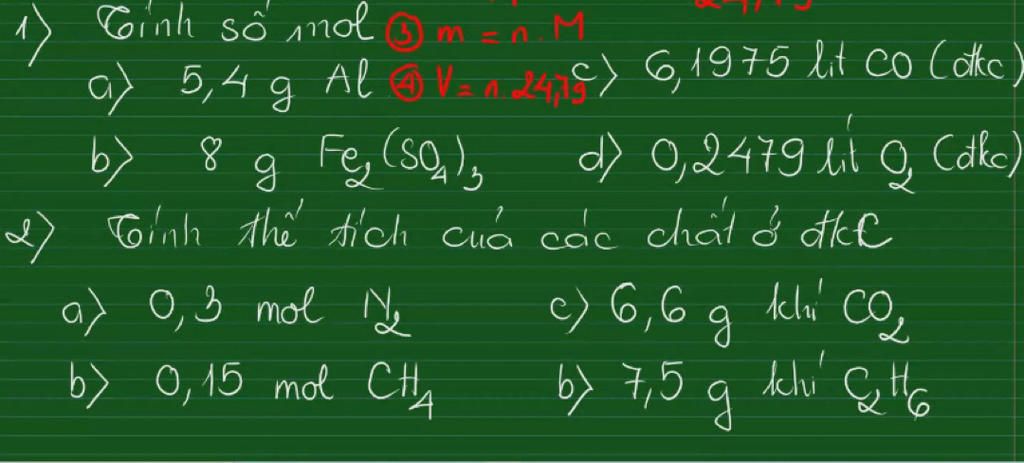 1) Tính số mol ③ m = n.M
a) 5,4 g Al ④ V = n.24,79 c) 6,1975 lit CO (đkc)
b) 8 g Fe₂(SO₄)₃ d) 0,2479 lít O₂ (đkc)
2) Tính thể tích của các chất ở đkc
a) 0,3 mol N₂ c) 6,6 g khí CO₂
b) 0,15 mol CH₄ b) 7,5 g khí C₂H₆